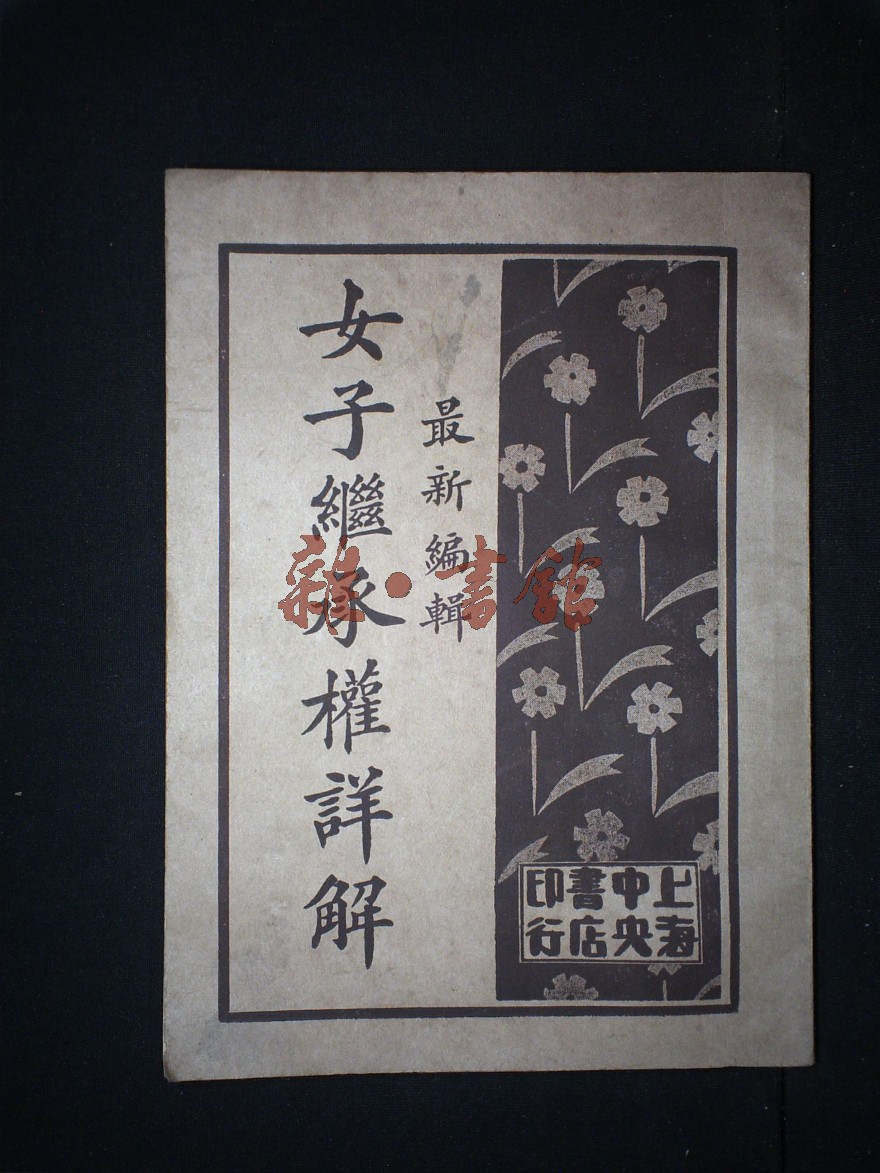 最新編輯
女子繼承權詳解
上海
中央
書店
印行
雜·書館